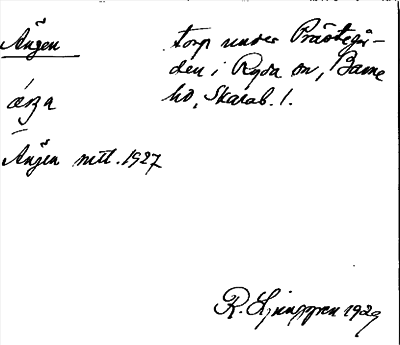 Ängen torp under Prästegår-
den i Ryda sn, Barne
hd, Skarab. l.
Ängen mtl. 1927
R. Ljunggren 1929